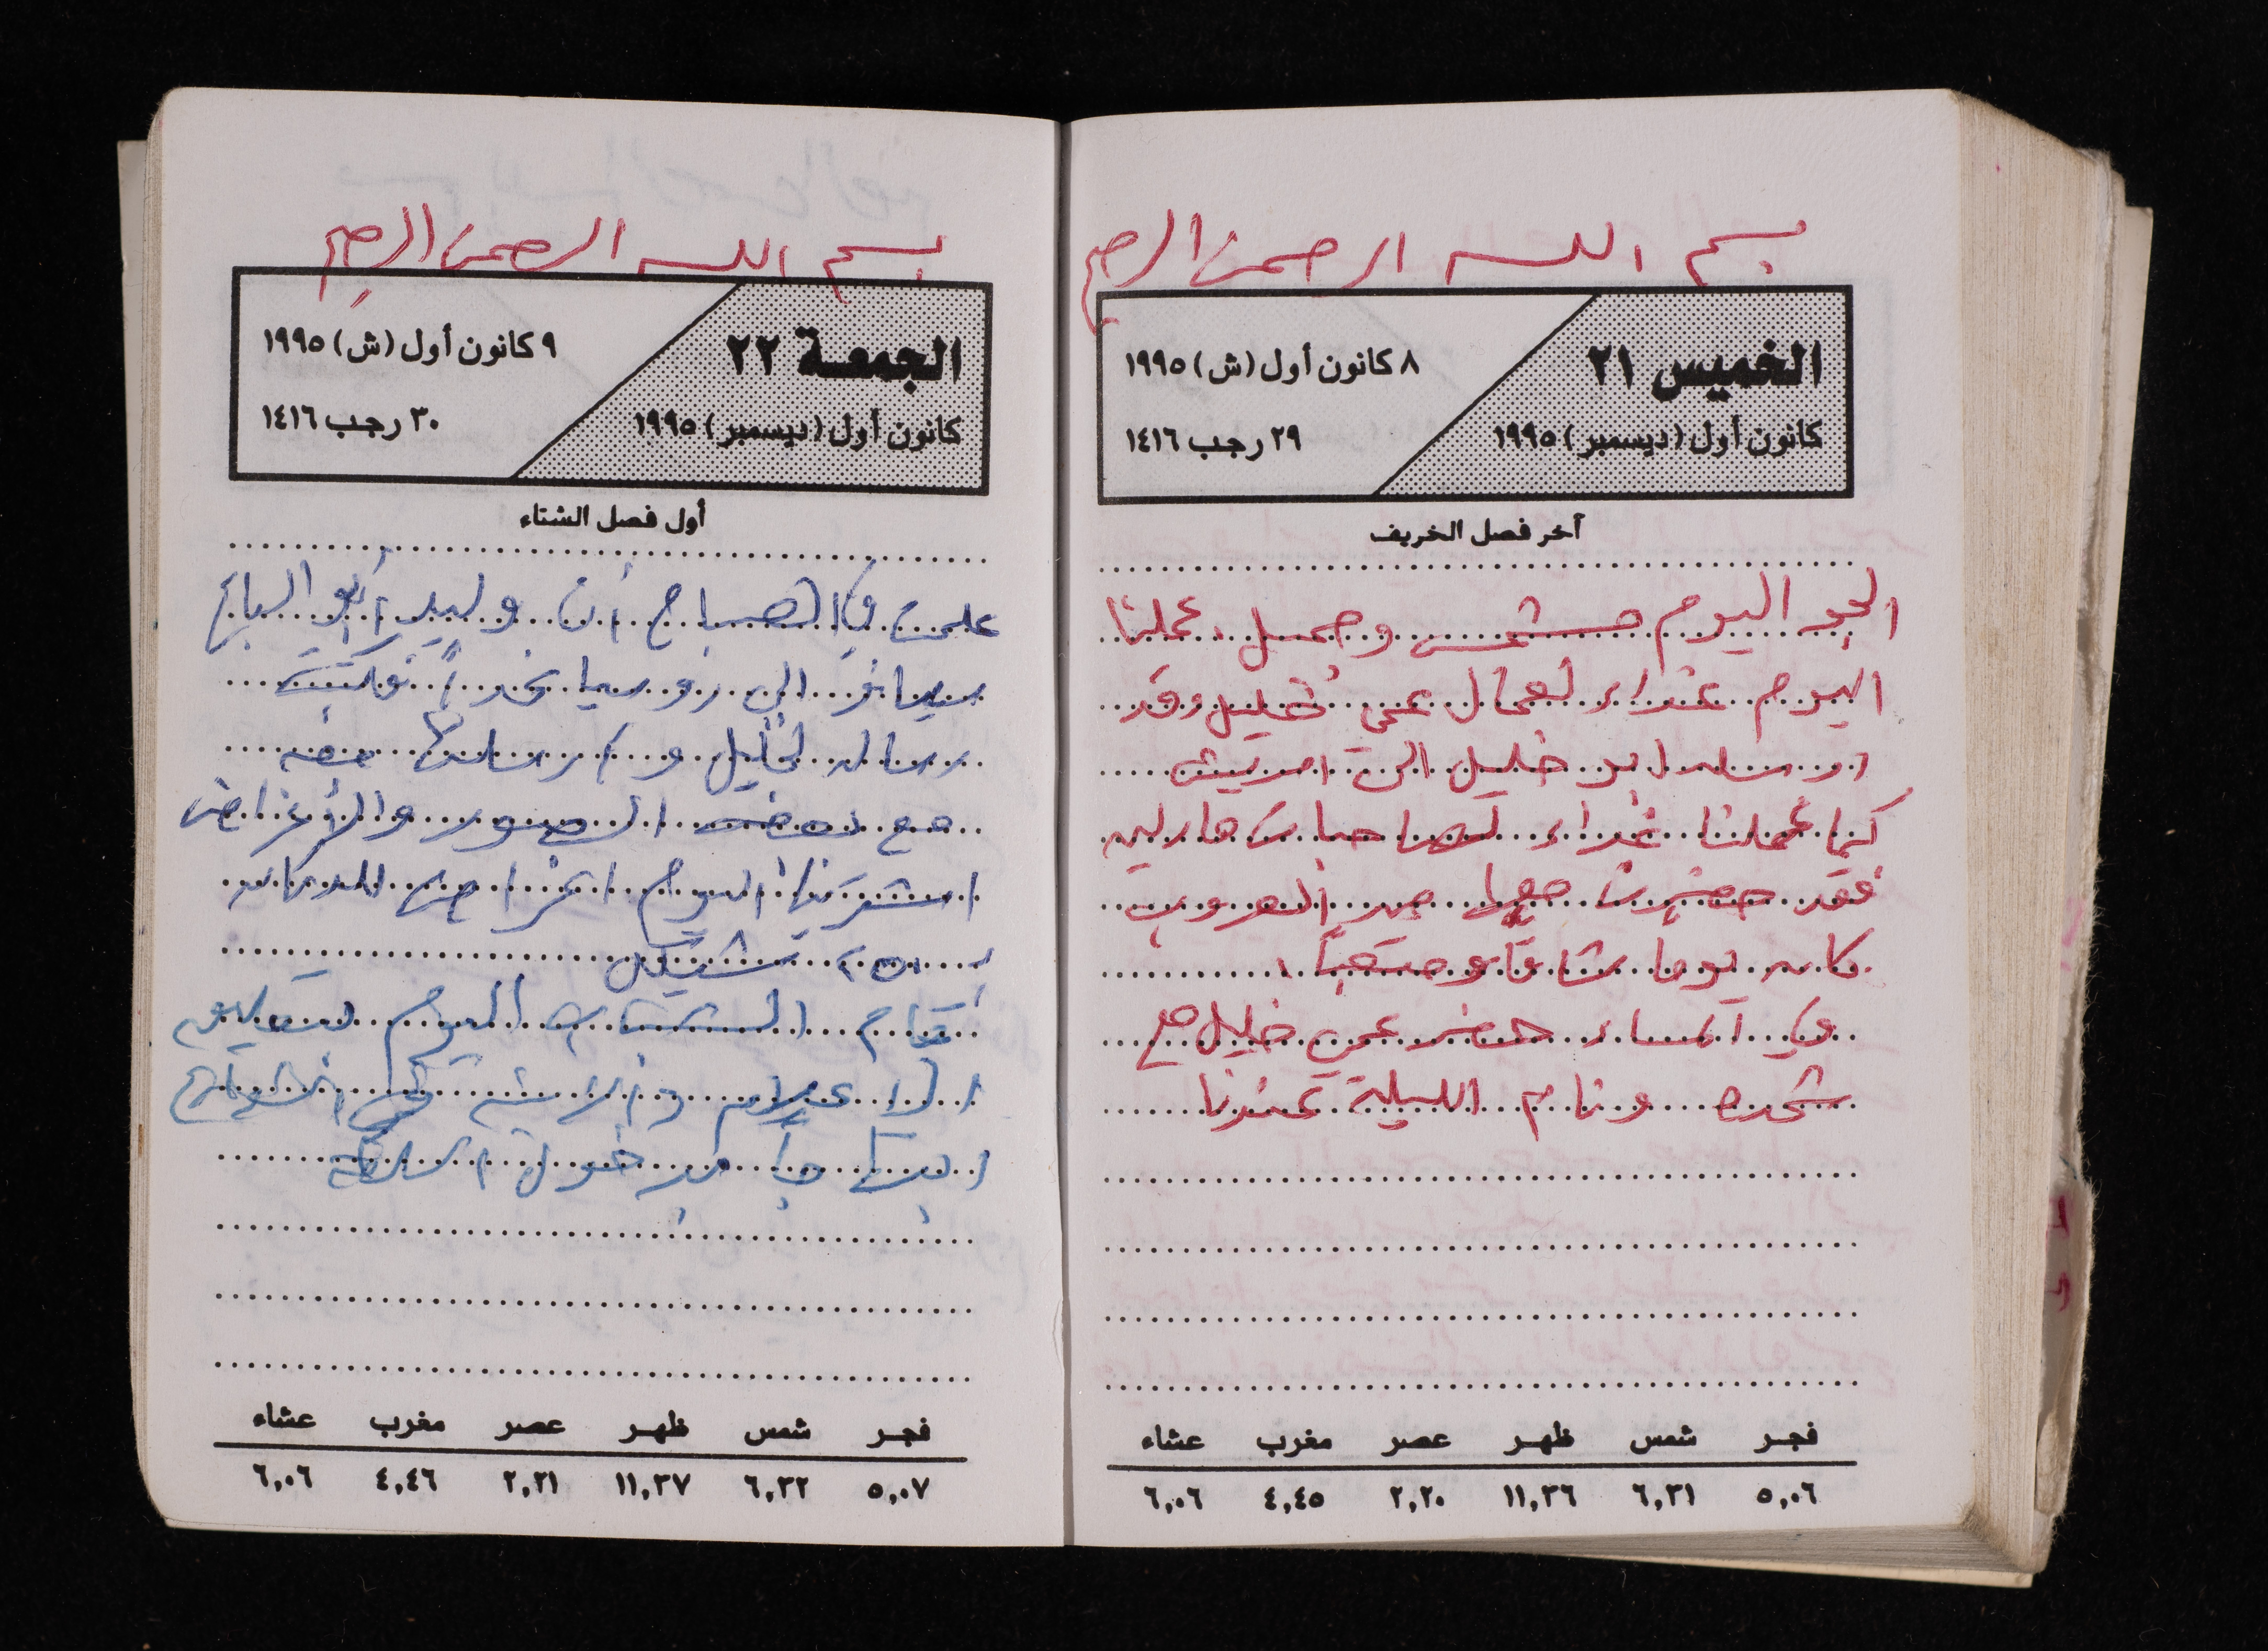 بسم الله الرحمن الرحيم
الخميس ٢١
كانون أول (ديسمبر) ١٩٩٥
٨ كانون أول (ش) ١٩٩٥
٢٩ رجب ١٤١٦
آخر فصل الخريف
الجو اليوم مشمس وجميل. عملنا
اليوم غداء لعمال عمي خليل وقد
ارسله ابو خليل الى
كما عملنا غداء لصاحبات مارلين
فقد حضرت معها من العروب
كان يوما شاقا ومتعبا.
وفي المساء حضر عمي خليل مع
شحده ونام الليلة عندنا
فجر شمس ظهر عصر مغرب عشاء
٥,٠٦ ٦,٣١ ١١,٣٦ ٢,٢٠ ٤,٤٥ ٦,٠٦
بسم الله الرحمن الرحيم
الجمعة ٢٢
كانون أول (ديسمبر) ١٩٩٥
٩ كانون أول (ش) ١٩٩٥
٣٠ رجب ١٤١٦
أول فصل الشتاء
علمت في الصباح أن وليد أبو
سيسافر الى روسيا غداً فكتبت
رساله لخليل و معه
مع بعض الصور والأغراض
اشترينا اليوم اغراض للدكان
بـ ٢٥٠ شيكل
قام الشباب اليوم بتعليق
الاعلام والزينة في الشوارع
ابتهاجاً بدخول السلطة
فجر شمس ظهر عصر مغرب عشاء
٥,٠٧ ٦,٣٢ ١١,٣٧ ٢,٢١ ٤,٤٦ ٦,٠٦